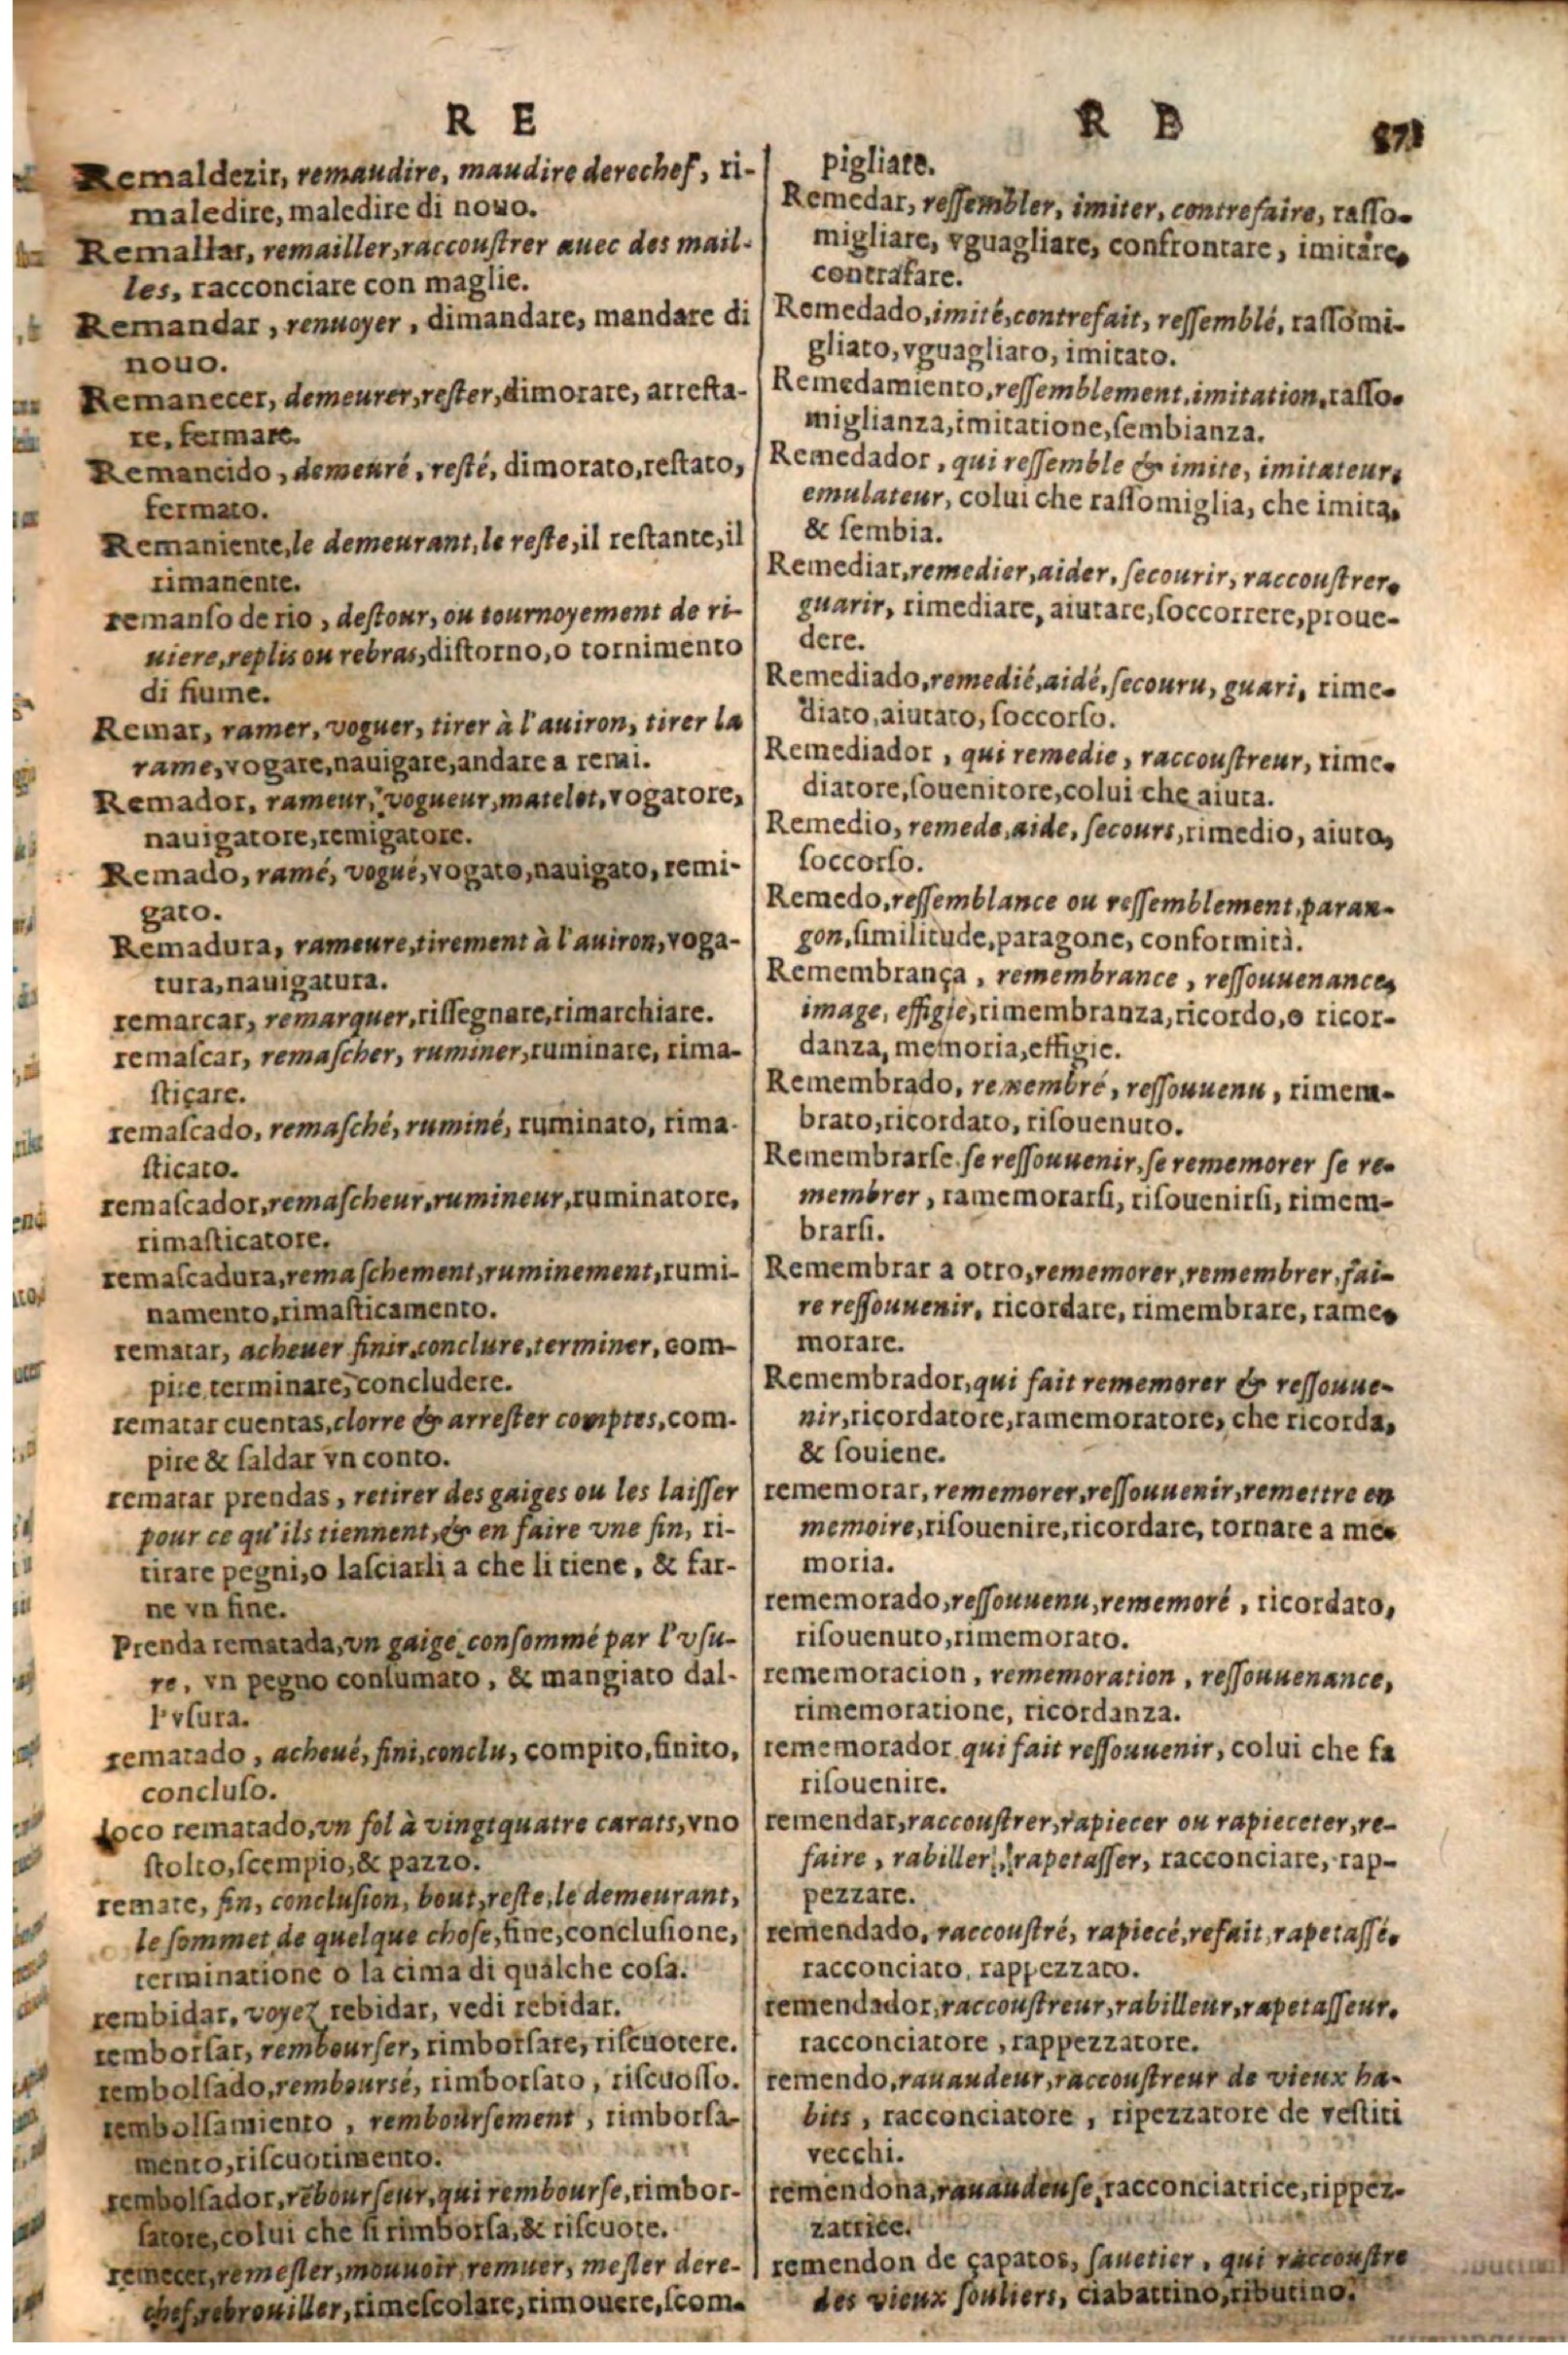 R E
Remaldezir, remaudire, maudire derechef, ri-
maledire, maledire di nouo.
Remallar, remailler, raccouſtrer auec des mail-
les, racconciare con maglie.
Remandar, renuoyer, dimandare, mandare di
nouo.
Remanecer, demeurer, reſter, dimorare, arreſta-
re, fermare.
Remancido, demeuré, reſté, dimorato, reſtato,
fermato.
Remaniente, le demeurant, le reſte, il reſtante, il
rimanente.
remanſo de rio, deſtour, ou tournoyement de ri-
uiere, replis ou rebras, diſtorno, o tornimento
di fiume.
Remar, ramer, voguer, tirer à l'auiron, tirer la
rame, vogare, nauigare, andare a remi.
Remador, rameur, vogueur, matelot, vogatore,
nauigatore, remigatore.
Remado, ramé, vogué, vogato, nauigato, remi-
gato.
Remadura, rameure, tirement à l'auiron, voga-
tura, nauigatura.
remarcar, remarquer, riſſegnare, rimarchiare.
remaſcar, remaſcher, ruminer, ruminare, rima-
ſticare.
remaſcado, remaſché, ruminé, ruminato, rima-
ſticato.
remaſcador, remaſcheur, rumineur, ruminatore,
rimaſticatore.
remaſcadura, remaſchement, ruminement, rumi-
namento, rimaſticamento.
rematar, acheuer finir, conclure, terminer, com-
pire, terminare, concludere.
rematar cuentas, clorre & arreſter comptes, com-
pire & ſaldar vn conto.
rematar prendas, retirer des gaiges ou les laiſſer
pour ce qu'ils tiennent, & en faire vne fin, ri-
tirare pegni, o laſciarli a che li tiene, & far-
ne vn fine.
Prenda rematada, vn gaige conſommé par l'vſu-
re, vn pegno conſumato, & mangiato dal-
l'vſura.
rematado, acheué, fini, conclu, compito, finito,
concluſo.
Loco rematado, vn fol à vingtquatre carats, vno
ſtolto, ſcempio, & pazzo.
remate, fin, concluſion, bout, reſte, le demeurant,
le ſommet de quelque choſe, fine, concluſione,
terminatione o la cima di qualche coſa.
rembidar, voyez rebidar, vedi rebidar.
remborſar, rembourſer, rimborſare, riſcuotere.
rembolſado, rembourſé, rimborſato, riſcuoſſo.
rembolſamiento, rembourſement, rimborſa-
mento, riſcuotimento.
rembolſador, rébourſeur, qui rembourſe, rimbor-
ſatore, colui che ſi rimborſa, & riſcuote.
remecer, remeſler, mouuoir, remuer, meſler dere-
chef, rebrouiller, rimeſcolare, rimouere, ſcom-
R E
871
pigliare.
Remedar, reſſembler, imiter, contrefaire, raſſo-
migliare, vguagliare, confrontare, imitare,
contrafare.
Remedado, imité, contrefait, reſſemblé, raſſomi-
gliato, vguagliato, imitato.
Remedamiento, reſſemblement, imitation, raſſo-
miglianza, imitatione, ſembianza.
Remedador, qui reſſemble & imite, imitateur,
emulateur, colui che raſſomiglia, che imita,
& ſembia.
Remediar, remedier, aider, ſecourir, raccouſtrer,
guarir, rimediare, aiutare, ſoccorrere, proue-
dere.
Remediado, remedié, aidé, ſecouru, guari, rime-
diato, aiutato, ſoccorſo.
Remediador, qui remedie, raccouſtreur, rime-
diatore, ſouenitore, colui che aiuta.
Remedio, remede, aide, ſecours, rimedio, aiuto,
ſoccorſo.
Remedo, reſſemblance ou reſſemblement, paran-
gon, ſimilitude, paragone, conformità.
Remembrança, remembrance, reſſouuenance,
image, effigie, rimembranza, ricordo, o ricor-
danza, memoria, effigie.
Remembrado, remembré, reſſouuenu, rimem-
brato, ricordato, riſouenuto.
Remembrarſe. ſe reſſouuenir, ſe rememorer ſe re-
membrer, ramemorarſi, riſouenirſi, rimem-
brarſi.
Remembrar a otro, rememorer, remembrer, fai-
re reſſouuenir, ricordare, rimembrare, rame-
morare.
Remembrador, qui fait rememorer & reſſouue-
nir, ricordatore, ramemoratore, che ricorda,
& ſouiene.
rememorar, rememorer, reſſouuenir, remettre en
memoire, riſouenire, ricordare, tornare a me-
moria.
rememorado, reſſouuenu, rememoré, ricordato,
riſouenuto, rimemorato.
rememoracion, rememoration, reſſouuenance,
rimemoratione, ricordanza.
rememorador qui fait reſſouuenir, colui che fa
riſouenire.
remendar, raccouſtrer, rapiecer ou rapieceter, re-
faire, rabiller, rapetaſſer, racconciare, rap-
pezzare.
remendado, raccouſtré, rapiecé, refait, rapetaſſé,
racconciato, rappezzato.
remendador, raccouſtreur, rabilleur, rapetaſſeur,
racconciatore, rappezzatore.
remendo, rauaudeur, raccouſtreur de vieux ha-
bits, racconciatore, ripezzatore de veſtiti
vecchi.
remendona, rauaudeuſe, racconciatrice, rippez-
zatrice.
remendon de çapatos, ſauetier, qui raccouſtre
des vieux ſouliers, ciabattino, ributino.